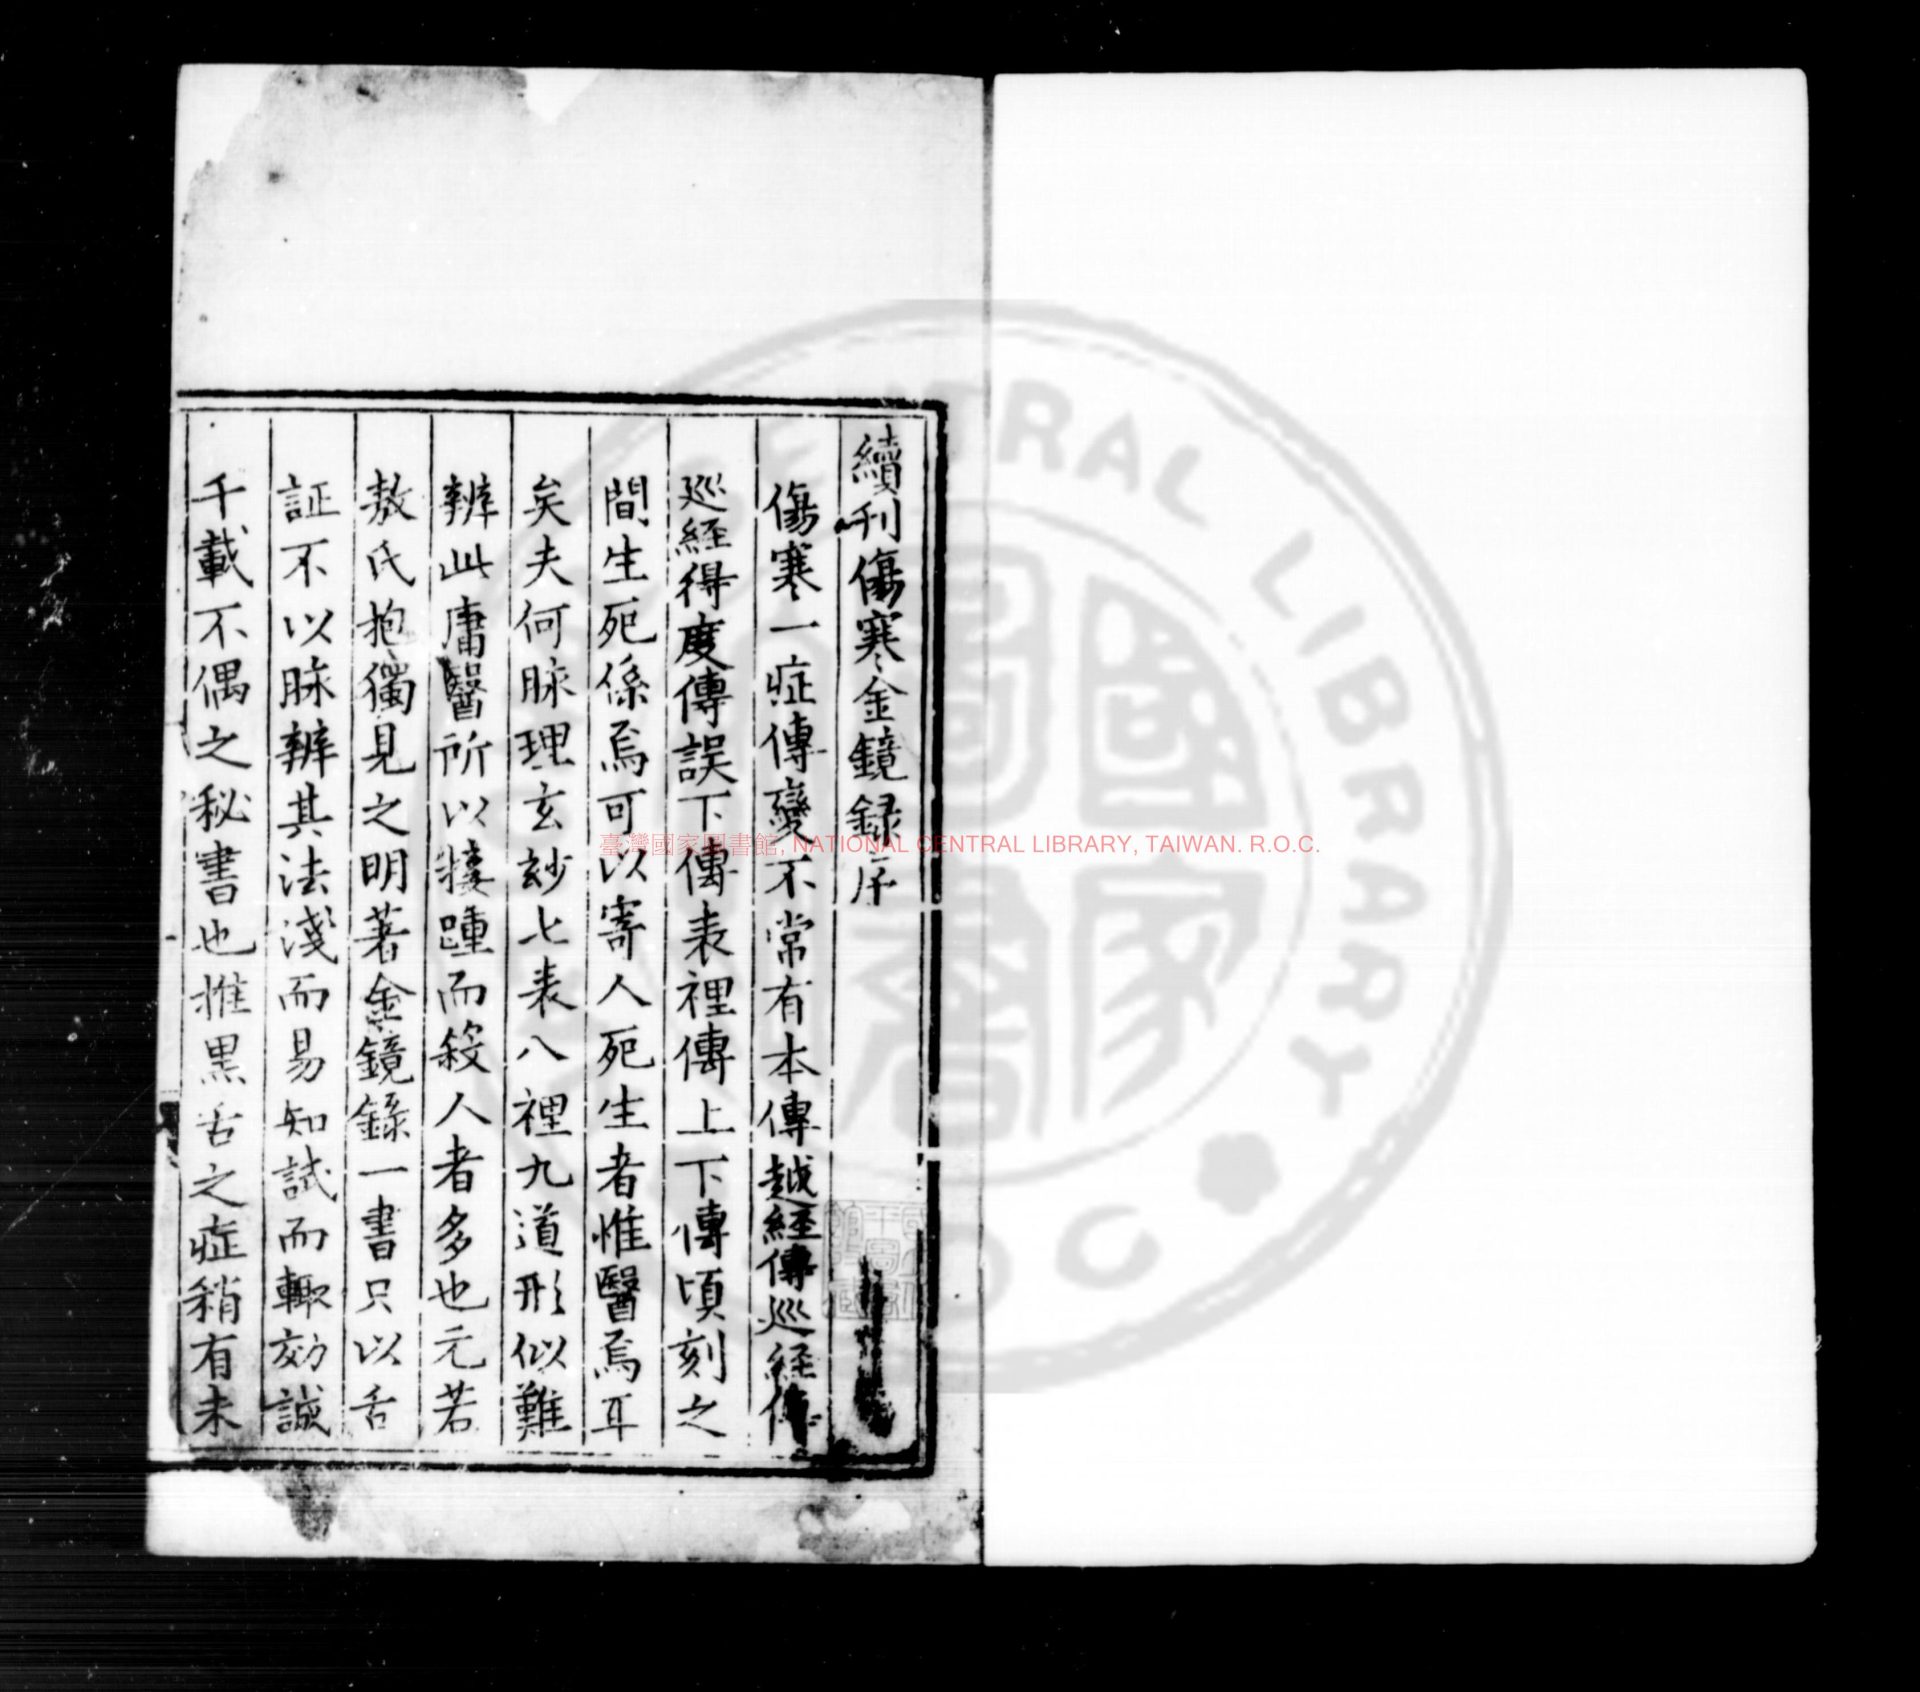 續刊傷寒金鏡録序
傷寒一症傳變不常有本傳越經傳巡經傳
巡經得度傳誤下傳表裡傳上下傳頃刻之
間生死係焉可以寄人死生者惟醫焉耳
矣夫何脉理玄玅七表八裡九道形似難
辨此庸醫所以接踵而殺人者多也元若
敖氏抱獨見之明著金鏡錄一書只以舌
証不以脉辨其法淺而易知試而輒効誠
千載不偶之秘書也惟黑舌之症稍有未
臺灣國家圖書館, NATIONAL CENTRAL LIBRARY, TAIWAN. R.O.C.